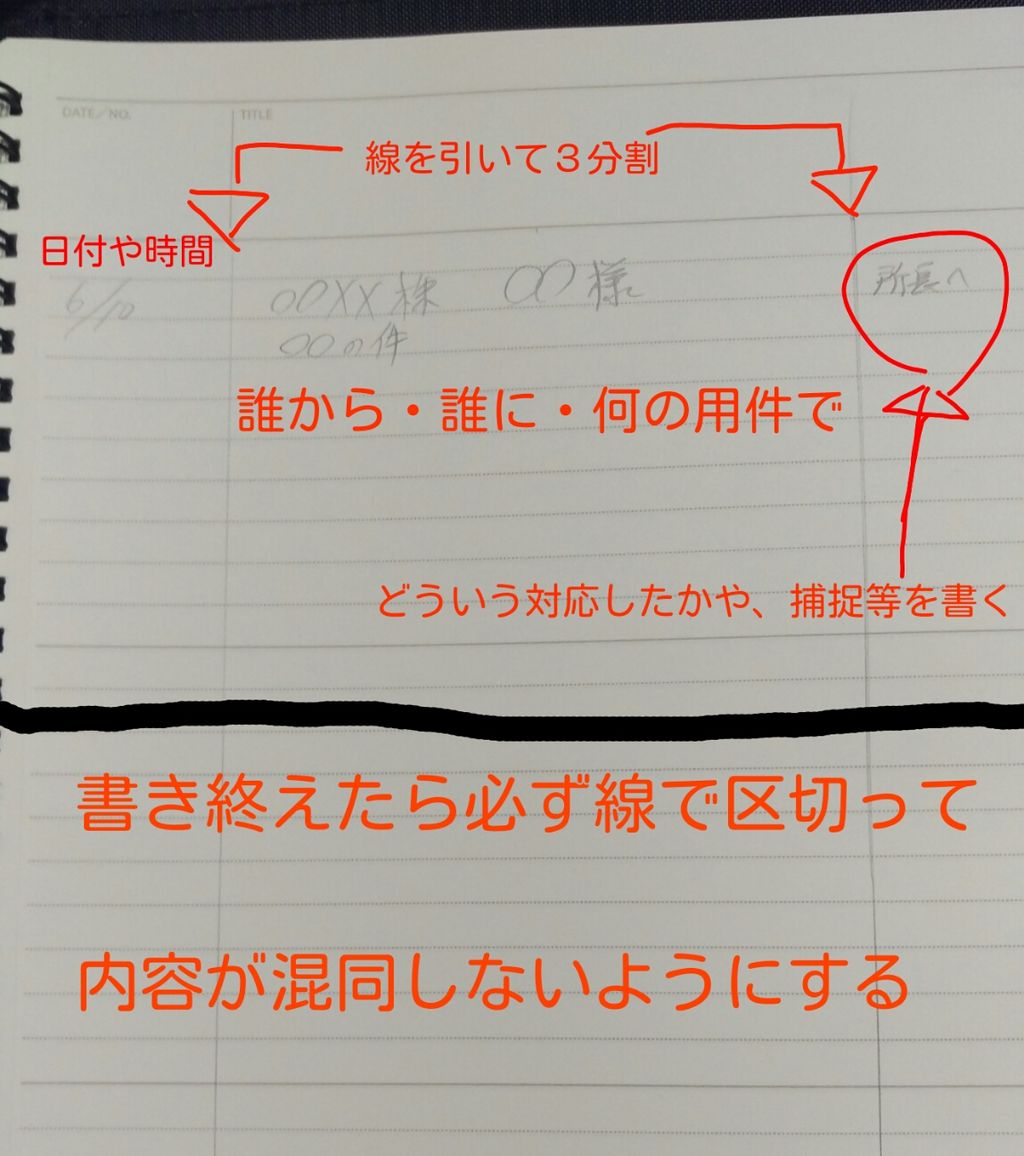 DATE/NO.
TITLE
線を引いて３分割
日付や時間
6/10
○○××株 ○○様
所長へ
○○の件
誰から・誰に・何の用件で
どういう対応したかや、捕捉等を書く
書き終えたら必ず線で区切って
内容が混同しないようにする